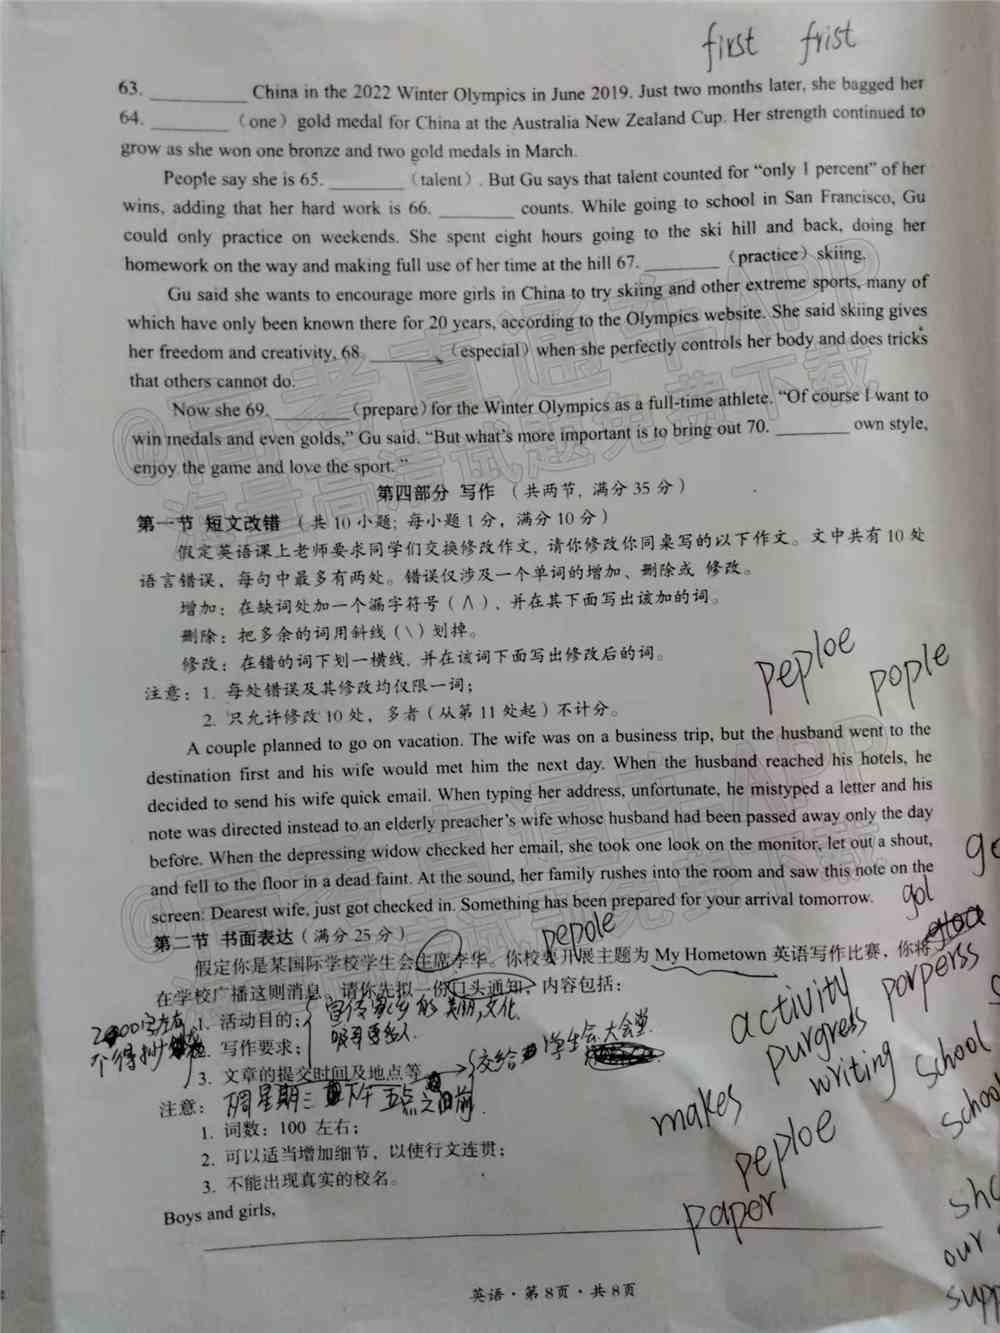 first frist
63. __________ China in the 2022 Winter Olympics in June 2019. Just two months later, she bagged her
64. ________ （one）gold medal for China at the Australia New Zealand Cup. Her strength continued to
grow as she won one bronze and two gold medals in March.
People say she is 65. ________（talent）. But Gu says that talent counted for “only 1 percent” of her
wins, adding that her hard work is 66. ________ counts. While going to school in San Francisco, Gu
could only practice on weekends. She spent eight hours going to the ski hill and back, doing her
homework on the way and making full use of her time at the hill 67. ________（practice）skiing.
Gu said she wants to encourage more girls in China to try skiing and other extreme sports, many of
which have only been known there for 20 years, according to the Olympics website. She said skiing gives
her freedom and creativity, 68. ________（especial）when she perfectly controls her body and does tricks
that others cannot do.
Now she 69. ________（prepare）for the Winter Olympics as a full-time athlete. “Of course I want to
win medals and even golds,” Gu said. “But what’s more important is to bring out 70. ________ own style,
enjoy the game and love the sport. ”
第四部分 写作 （共两节，满分 35 分）
第一节 短文改错 （共 10 小题；每小题 1 分，满分 10 分）
假定英语课上老师要求同学们交换修改作文，请你修改你同桌写的以下作文。文中共有 10 处
语言错误，每句中最多有两处。错误仅涉及一个单词的增加、删除或 修改。
增加：在缺词处加一个漏字符号（∧），并在其下面写出该加的词。
删除：把多余的词用斜线（\）划掉。
修改：在错的词下划一横线，并在该词下面写出修改后的词。
注意：1. 每处错误及其修改均仅限一词；
2. 只允许修改 10 处，多者（从第 11 处起）不计分。
peploe
pople
A couple planned to go on vacation. The wife was on a business trip, but the husband went to the
destination first and his wife would met him the next day. When the husband reached his hotels, he
decided to send his wife quick email. When typing her address, unfortunate, he mistyped a letter and his
note was directed instead to an elderly preacher’s wife whose husband had been passed away only the day
before. When the depressing widow checked her email, she took one look on the monitor, let out a shout,
and fell to the floor in a dead faint. At the sound, her family rushes into the room and saw this note on the
screen: Dearest wife, just got checked in. Something has been prepared for your arrival tomorrow.
gol
第二节 书面表达（满分 25 分）
pepole
假定你是某国际学校学生会主席李华。你校要开展主题为 My Hometown 英语写作比赛，你将
在学校广播这则消息，请你先拟一份口头通知，内容包括：
1. 活动目的；
宣传家乡的美丽,文化
2. 写作要求；
3. 文章的提交时间及地点等
交给 学生会 大会堂
周星期三 下午五点之前
注意：
1. 词数：100 左右；
2. 可以适当增加细节，以使行文连贯；
3. 不能出现真实的校名。
Boys and girls,
activity porperss
purgress
writing school
makes
peploe
paper
our
英语·第 8 页·共 8 页
@高考直通车APP
海量高清试题免费下载
@高考直通车APP
海量高清试题免费下载